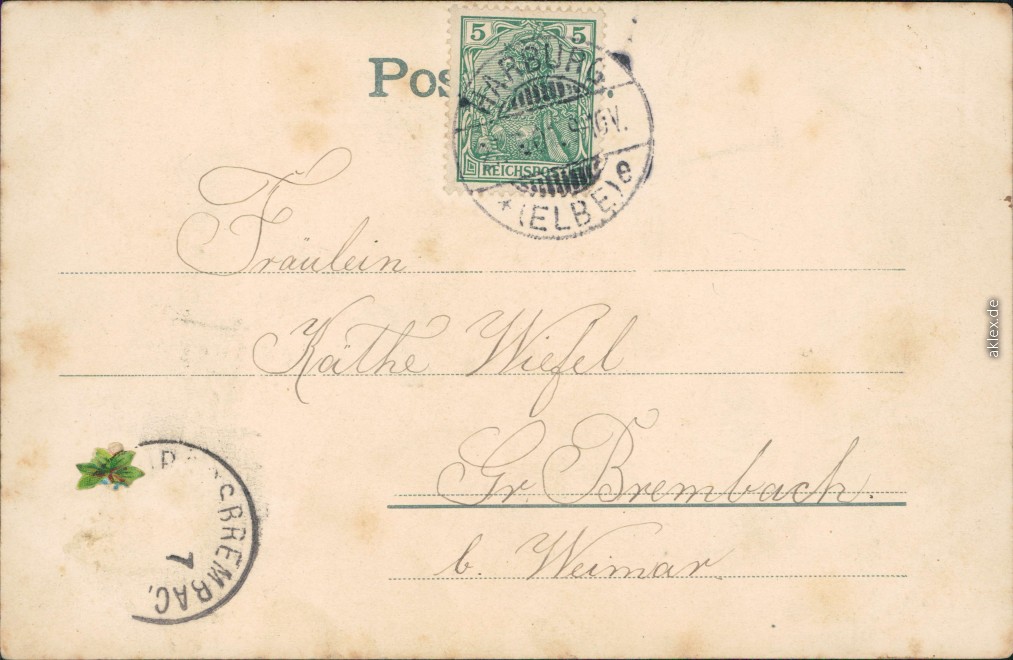 5 5
REICHSPOST
HARBURG
9-10V.
* (ELBE) e
Fräulein
Käthe Wiefel
Gr. Brembach.
b. Weimar
BREMBAC
aklex.de